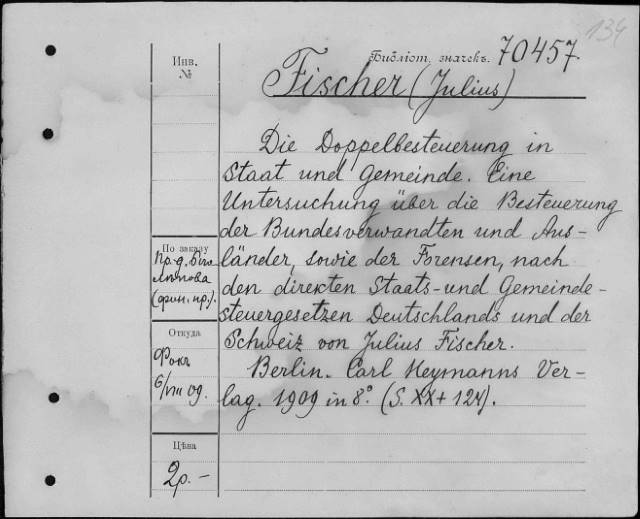 134
Инв.
№
Библіот. значекъ. 70457
Fischer (Julius)
Die Doppelbesteuerung in
Staat und Gemeinde. Eine
Untersuchung über die Besteuerung
der Bundesverwandten und Aus-
länder, sowie der Forensen, nach
den direkten Staats- und Gemeinde-
steuergesetzen Deutschlands und der
Schweiz von Julius Fischer.
Berlin. Carl Heymanns Ver-
lag. 1909 in 8° (S. XX + 124).
По заказу
(фин. пр.).
Откуда
Фокъ
6/VIII 09.
Цѣна
2р. –